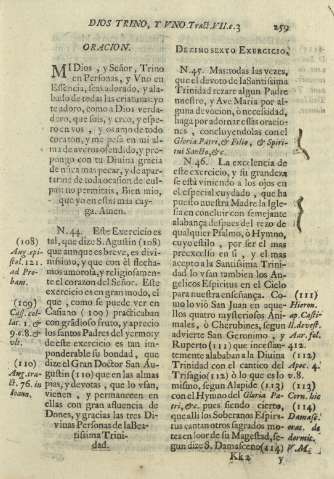 DIOS TRINO, Y VNO Tract. VII. c. 3
259
ORACION.
MI Dios, y Señor, Trino
en Personas, y Vno en
Essencia, seais adorado, y ala-
bado de todas las criaturas: yo
te adoro, como a Dios verda-
dero, que sois, y creo, y espe-
ro en vos, y os amo de todo
coraçon, y me pesa en mi al-
ma de averos ofendido, y pro-
pongo con tu Divina gracia
de nunca mas pecar, y de apar-
tarme de toda ocasion de cul-
pa: no permitais, Bien mio,
que yo en està mas cay-
ga. Amen.
N. 44. Este Exercicio es
tal, que dize S. Agustin (108)
que aunque es breve, es divi-
nissimo, y que con èl flecha-
mos amorosa, y religiosamen-
te el coraçon del Señor. Este
exercicio es en gran modo, el
que, como se puede ver en
Casiano (109) practicaban
con grãdioso fruto, y aprecio
los santos Padres del yermo y
de este exercicio es tan im-
ponderable su bondad, que
dize el Gran Doctor San Au-
gustin (110) que en las almas
pias, y devotas, que lo vsan,
vienen, y permanecen en
ellas con gran afluencia de
Dones, y gracias las tres Di-
vinas Personas de la Bea-
tissima Trini-
dad.
(108)
Aug. epi-
stol. 121.
ad Pro-
bam.
(109)
Cass. col-
lat. 1. &
9. c. 8. &
vlt.
(110)
Aug. tra-
ct. 76. in
Ioann.
DEZIMOSEXTO EXERCICIO.
N. 45. Mas: todas las vezes,
que el devoto de la Santissima
Trinidad rezare algun Padre
nuestro, y Ave Maria por al-
guna devocion, ò necesidad,
haga por adornar estas oracio-
nes, concluyendolas con el
Gloria Patri, & Filio, & Spiri-
tui Sancto, &c.
N. 46. La excelencia de
este exercicio, y su grandeza
se està viniendo a los ojos con
el especial cuydado, que ha
puesto nuestra Madre la Igle-
sia en concluir con semejante
alabança despues del rezo de
qualquier Psalmo, ò Hymno,
cuyo estilo, por ser el mas
precexcelso en sì, y el mas
acepto a la Santissima Trini-
dad lo vsan tambien los An-
gelicos Espiritus en el Cielo
para nuestra enseñança. Co-
mo lo viò San Juan en aque-
llos quatro mysteriosos Ani-
males, ò Cherubines, segun
advierte San Geronimo, y
Ruperto (111) que incessan-
temente alababan a la Divina
Trinidad con el cantico del
Trisagio (112) ò lo que es lo
mismo, segun Alapide (113)
con el Hymno del Gloria Pa-
tri, &c. pues siendo cierto,
que alli los Soberanos Espiri-
tus cantan otros sagrados mo-
tes en loor de su Magestad, se-
gun dize S. Damasceno (114)
(111)
Hieron.
ap. Casti-
ll. de vest.
Aar. fol.
412.
(112)
Apoc. 4.
v. 8.
(113)
Corn. hic
(114)
Damasc.
orat. de
dormit.
V. M.
Kk 2
y